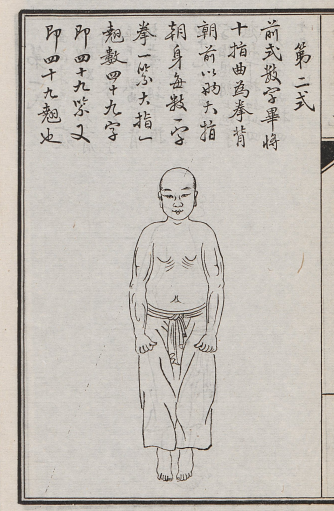 第二式
前式數字畢將
十指曲為拳背
朝前以兩大指
朝身每數一字
拳一緊大指一
翹數四十九字
即四十九緊又
即四十九翹也